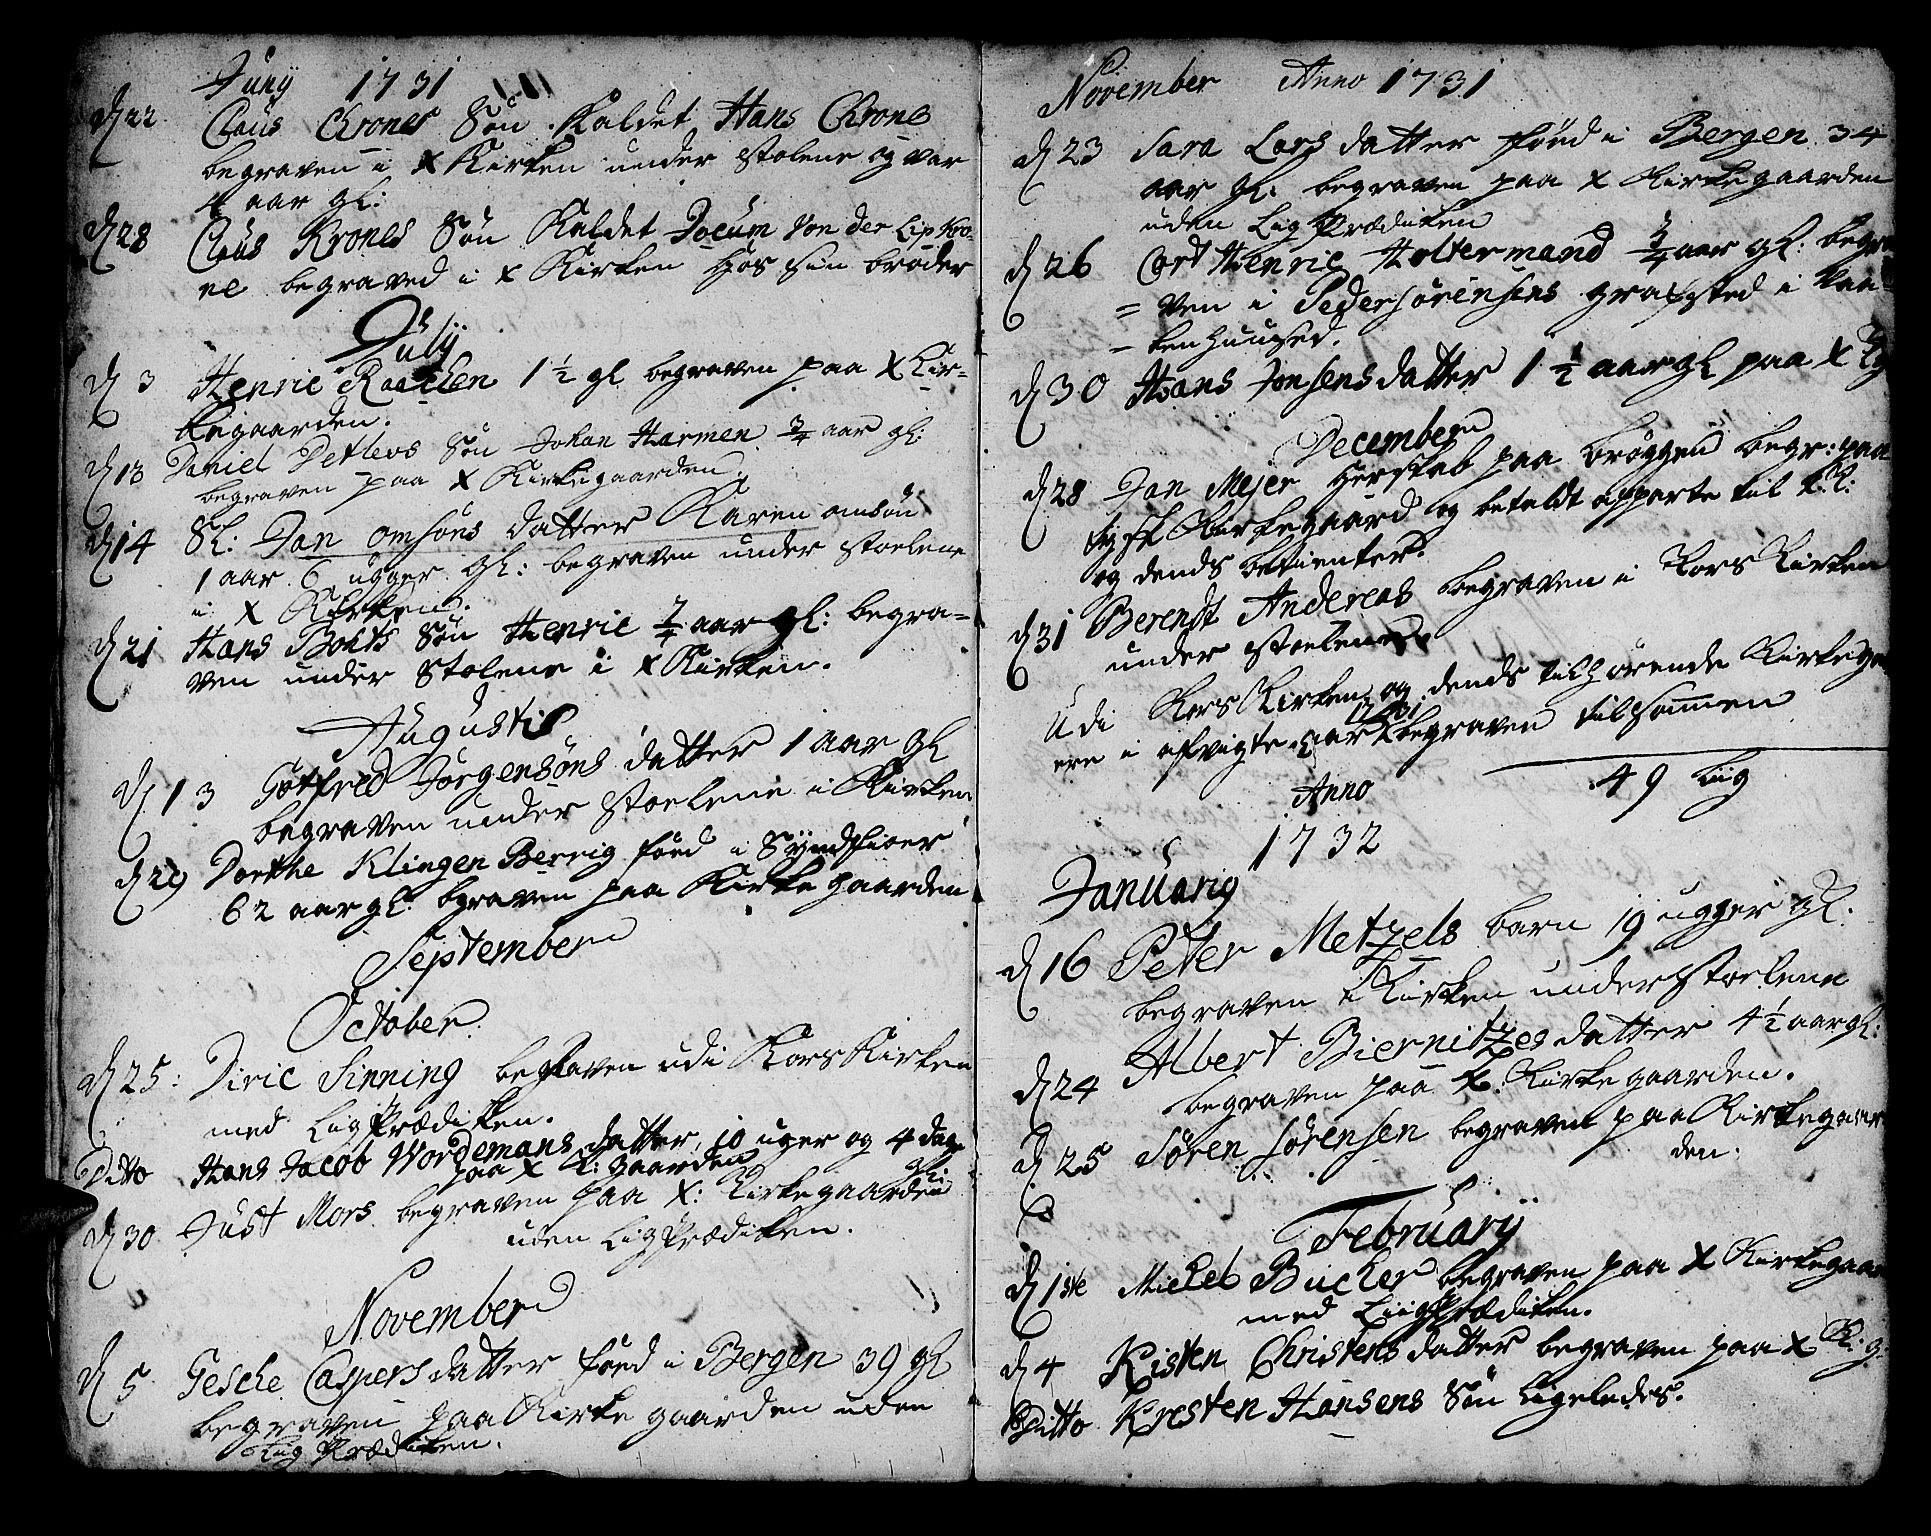 Juny 1731
d 22 Claus Crones Søn Kaldet Hans Crone
begraven i X Kirken under stolene og var
4 aar gl:
d 28 Claus Krones Søn Kaldet Jocum Von der Lip Kro-
ne begraved i x Kirken hos sin broder
July
d 3 Henric Raatken 1 1/2 gl begraven paa X Kir-
kegaarden.
d 13 Daniel Detlevs Søn Johan Harmen 3/4 aar gl:
begraven paa X Kirkegaarden.
d 14 Sl: Jan Omsøns datter Karen Omsøn
1 aar 6 ugger gl: begraven under stoelene
i X Kirken.
d 21 Hans Bohts Søn Henric 7/4 aar gl: begra-
ven under Stolene i X Kirken.
Augusti
d 13 Gotfred Jørgensøns datter 1 aar gl
begraven under stoelene i Kirken
d 29 Dorthe Klingen Berrig föed i Syndfioer
62 aar gl: begraven paa Kirke gaarden
September
October
d 25: Diric Sinning begraven udi Kors Kirken
med Lig Prædiken.
Ditto Hans Jacob Wordemans datter, 10 uger og 4 dage
paa X K: gaarden gl:
d 30 Just Mors begraven paa X: Kirkegaarden
uden Lig Prædiken.
November
d 5 Gesche Caspers datter föed i Bergen 39 gl
begraven paa Kirke gaarden uden
Liig Prædiken.
November Anno 1731
d 23 Sara Lars datter föed i Bergen 34
aar gl: begraven paa X Kirkegaarden
uden Lig Prædiken
d 26 Cort Henric Holtermand 3/4 aar gl: begra
= ven i Peder Sørensens grafsted i Vaa-
= benhuused.
d 30 Hans Jonsens datter 1 1/2 aar gl paa X Kg
December
d 28 Jan Mejer Herskab paa Brøggen begr: paa
tysk Kirkegaard og betaldt apparte til X: K:
og dends betienter.
d 31 Berendt Andreas begraven i Kors Kirken
under stoelene
Udi Kors Kirken og dends tilhørende Kirkega
ere i afvigte aar 1731 begraven tilsammen
49 Liig
Anno
1732
January
d 16 Peter Metzels barn 19 ugger gl.
begraven i Kirken under stoelene
d 24 Albert Biernitzes datter 4 1/2 aar gl:
begraven paa X: Kirke gaarden.
d 25 Søren Sørensen begraven paa Kirkegaar
den.
February
d 1ste Mickel Bucker begraven paa X Kirkegaar
med Liig Prædiken.
d 4 Kisten Christens datter begraven paa X K: g-
Ditto Kresten Hansens Søn Ligeledes.